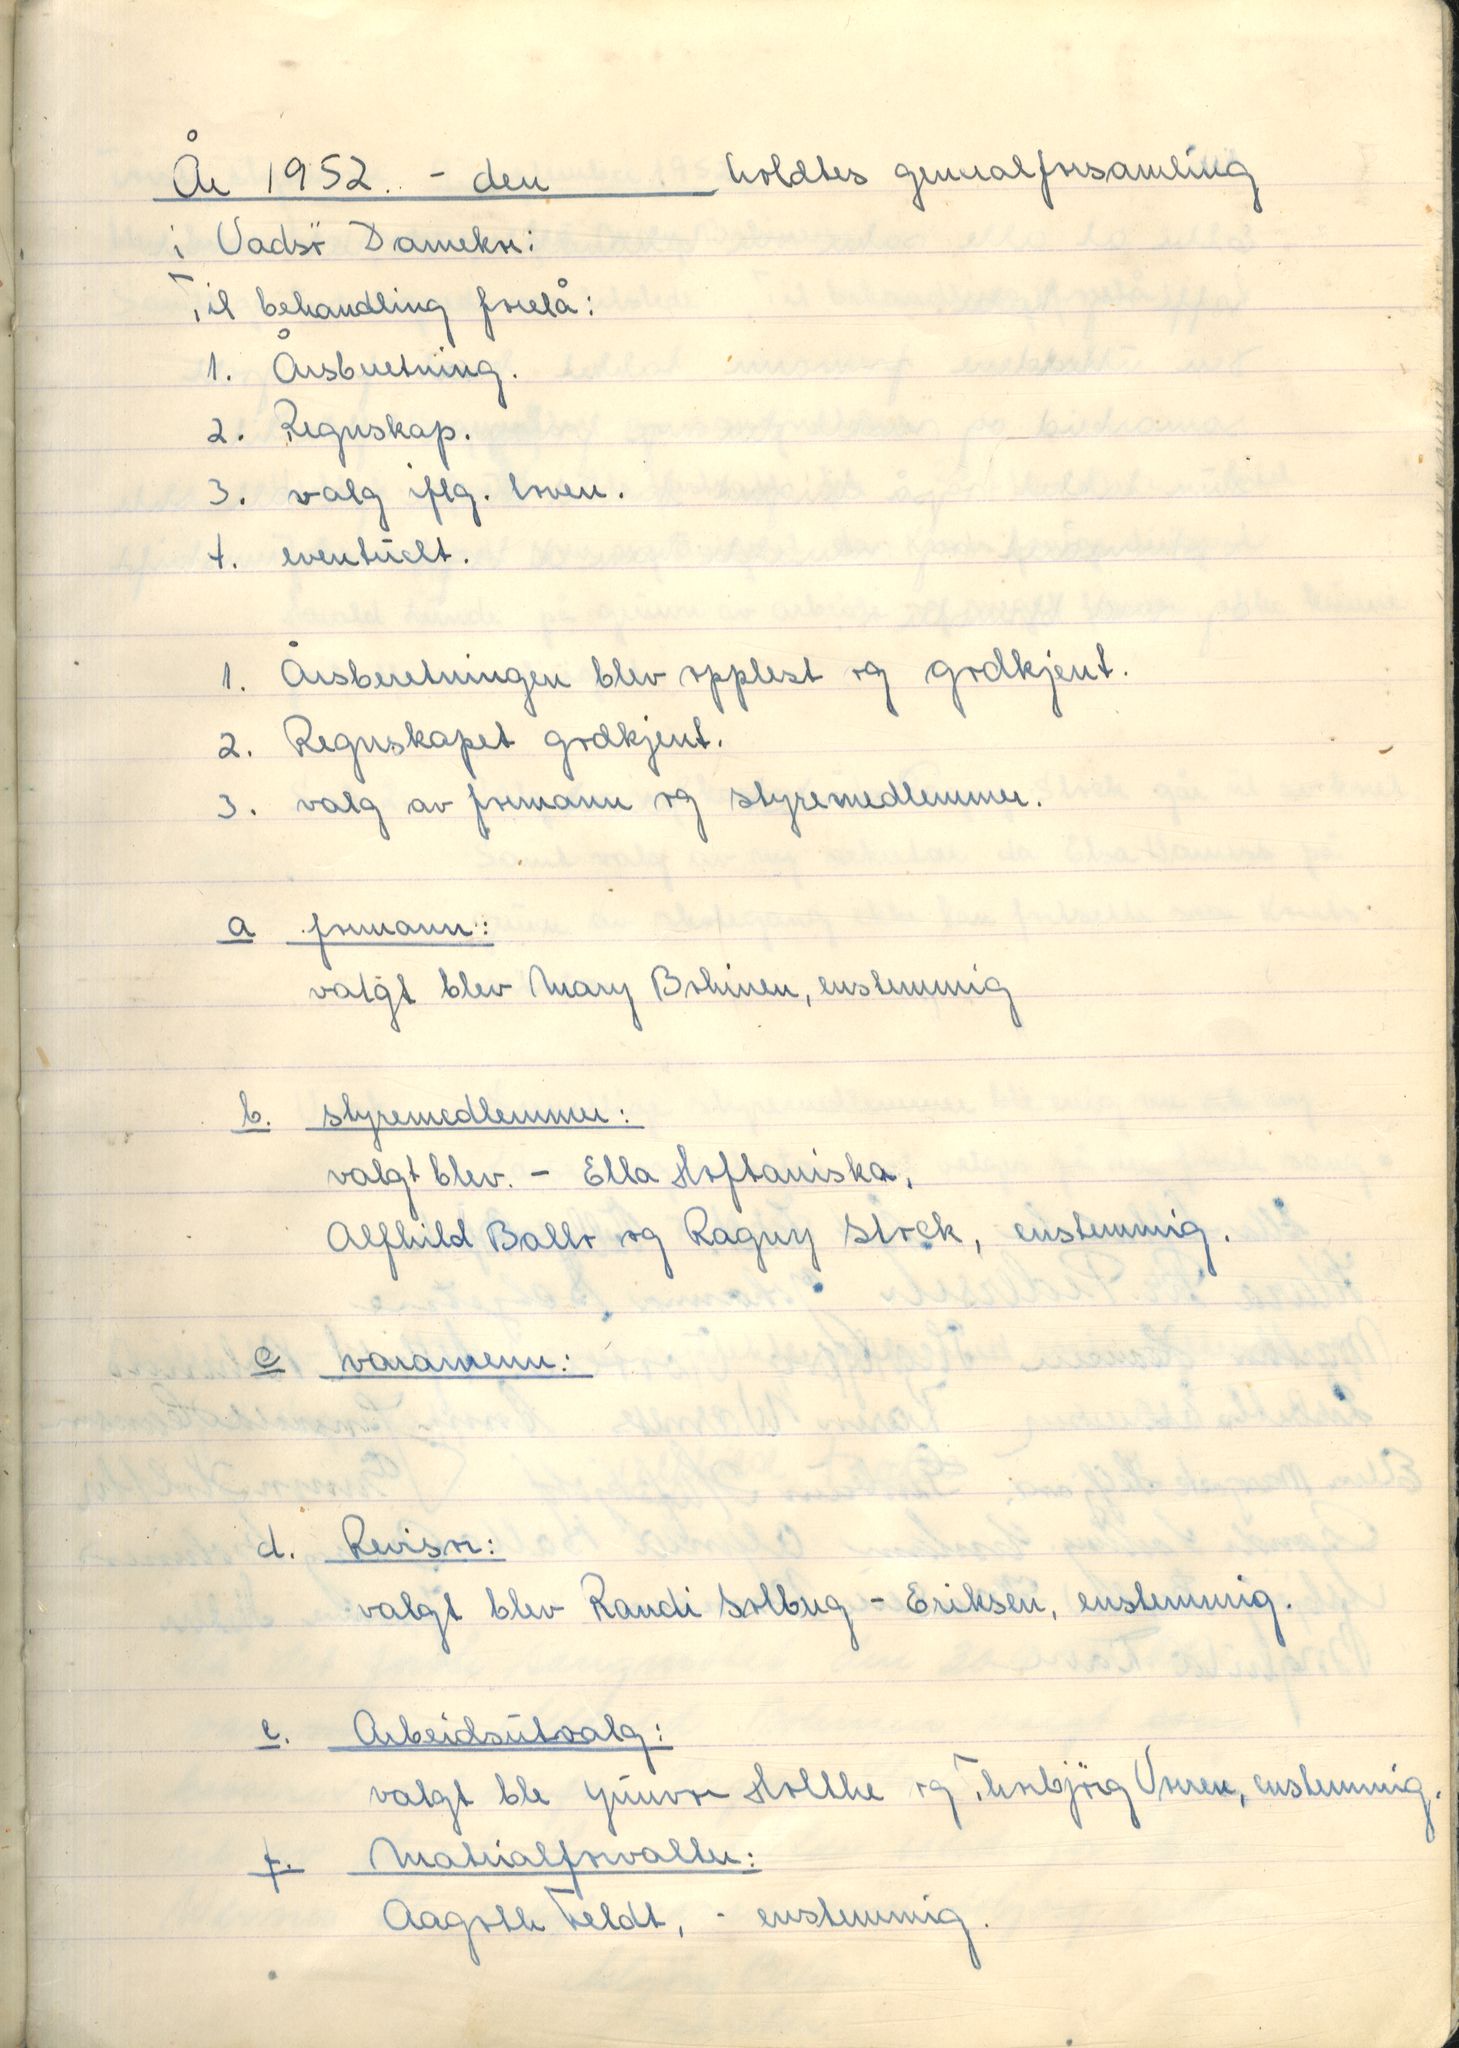 År 1952. - den holdtes generalforsamling
i Vadsö Damekor:
Til behandling forelå:
1. Årsberetning.
2. Regnskap.
3. valg iflg. loven.
4. eventuelt.
1. Årsberetningen blev opplest og godkjent.
2. Regnskapet godkjent.
3. valg av formann og styremedlemmer.
a formann:
valgt blev Mary Bohinen, enstemmig
b. styremedlemmer:
valgt blev. - Ella Hoftaniska,
Alfhild Ballo og Ragny Stock, enstemmig.
c varamenn:
d. Revisor:
valgt blev Randi Solberg - Eriksen, enstemmig.
e. Arbeidsutvalg:
valgt ble Gunvor Holthe og Thorbjörg Voren, enstemmig.
f. Materialforvalter:
Aagoth Feldt, - enstemmig.